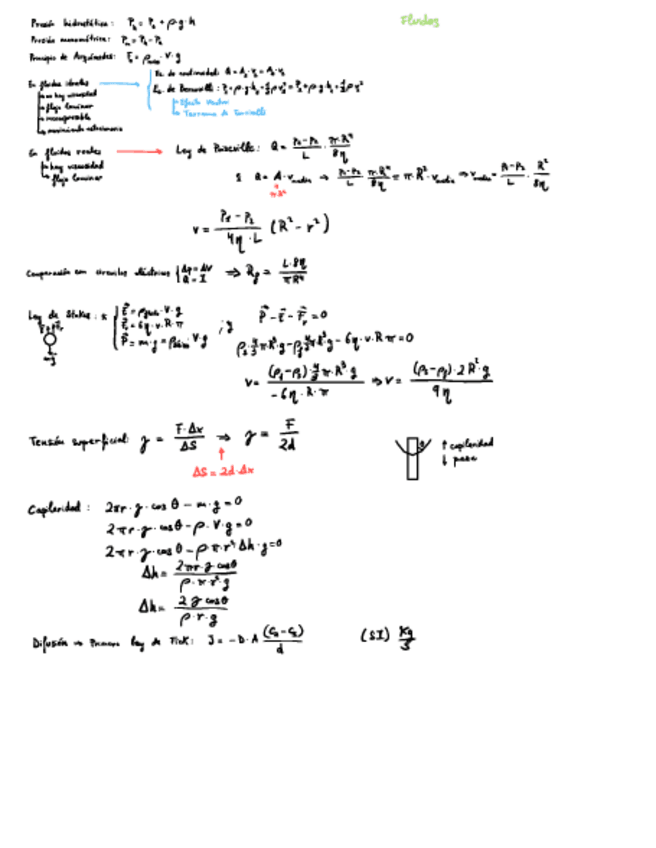 Fluidos
Presión hidrostática: P_h = P_0 + ρ·g·h
Presión manométrica: P_m = P_h - P_0
Principio de Arquímedes: E = ρ·V·g
En fluidos ideales
no hay viscosidad
flujo laminar
incompresible
movimiento estacionario
Ec. de continuidad: Q = A_1·v_1 = A_2·v_2
Ec. de Bernoulli: P_1 + ρ·g·h_1 + ½ρv_1² = P_2 + ρ·g·h_2 + ½ρv_2²
Efecto Venturi
Teorema de Torricelli
En fluidos reales
hay viscosidad
flujo laminar
Ley de Poiseuille: Q = (P_1 - P_2)/L · π·R⁴/8η
Q = A·v_media → (P_1 - P_2)/L · π·R⁴/8η = π·R²·v_media ⇒ v_media = (P_1 - P_2)/L · R²/8η
π·R²
v = (P_1 - P_2)/(4η·L) (R² - r²)
Comparación con circuitos eléctricos { Δp = ΔV
Q = I
⇒ R_f = L·8η/πR⁴
Ley de Stokes:
E = ρ·V·g
F_r = 6η·v·R·π
P = m·g = ρ·V·g
P - E - F_r = 0
ρ_s 4/3 π·R³·g - ρ_f 4/3 π·R³·g - 6η·v·R·π = 0
v = (ρ_1 - ρ_2)·4/3·π·R³·g / -6η·R·π ⇒ v = (ρ_s - ρ_f)·2R²·g / 9η
mg
Tensión superficial: γ = F·Δx/ΔS ⇒ γ = F/2d
ΔS = 2d·Δx
↑ capilaridad
↓ peso
Capilaridad: 2πr·γ·cos θ - m·g = 0
2πr·γ·cos θ - ρ·V·g = 0
2πr·γ·cos θ - ρπ·r²Δh·g = 0
Δh = 2πr·γ cos θ / ρ·π·r²·g
Δh = 2γ cos θ / ρ·r·g
Difusión → Primera ley de Fick: J = -D·A (C_1 - C_2)/d
(SI) kg/s